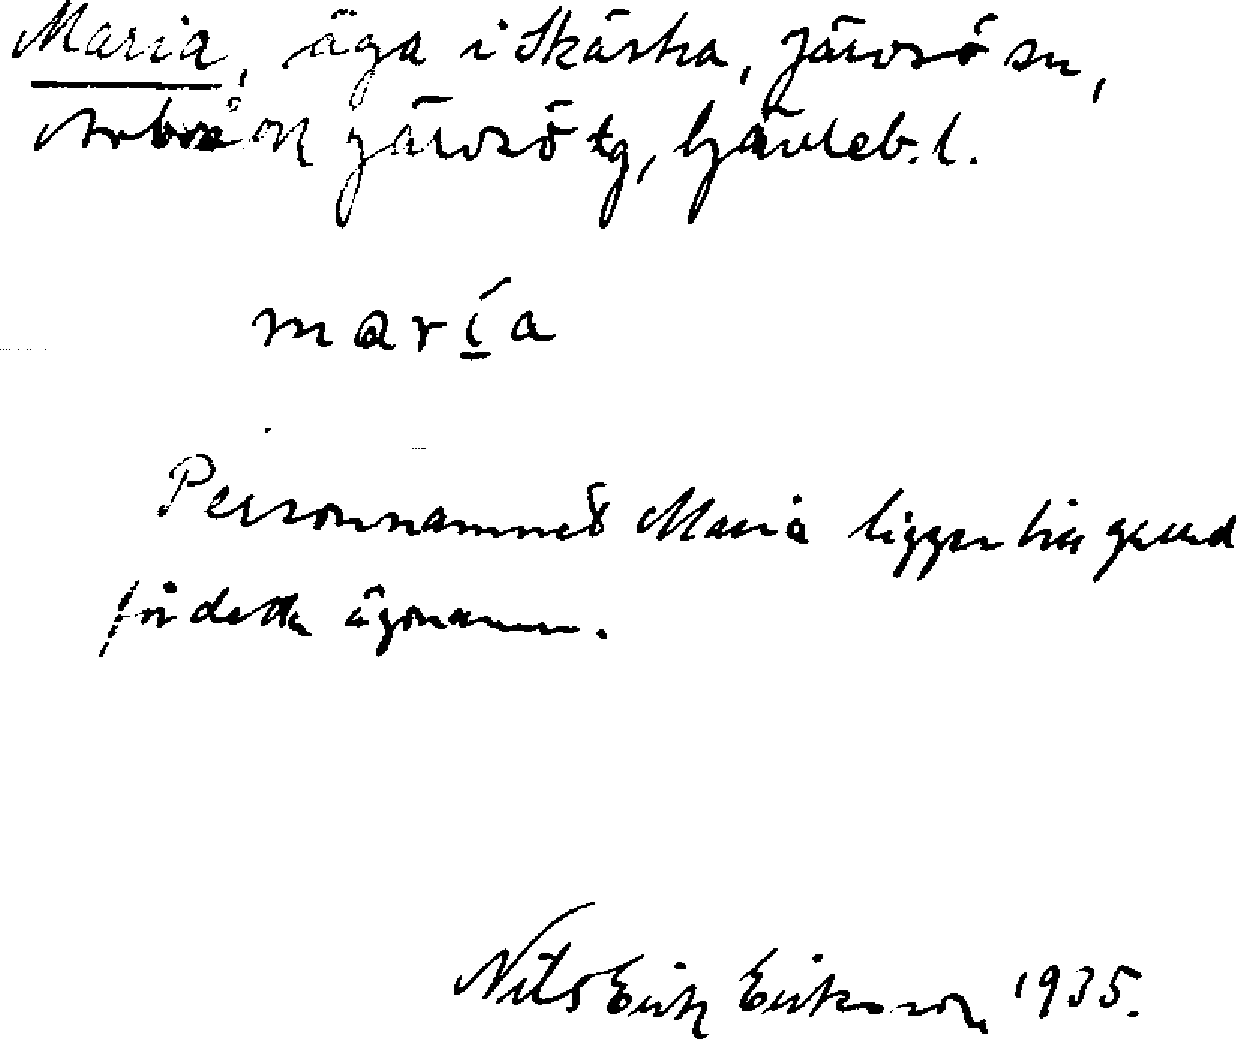 Maria, äga i Skästra, Järvsö sn,
Arbrå o Järvsö tg, Gävleb. l.
marí̱a
Personnamnet Maria ligger till grund
för detta ägonamn.
Nils Erik Eriksson 1935.